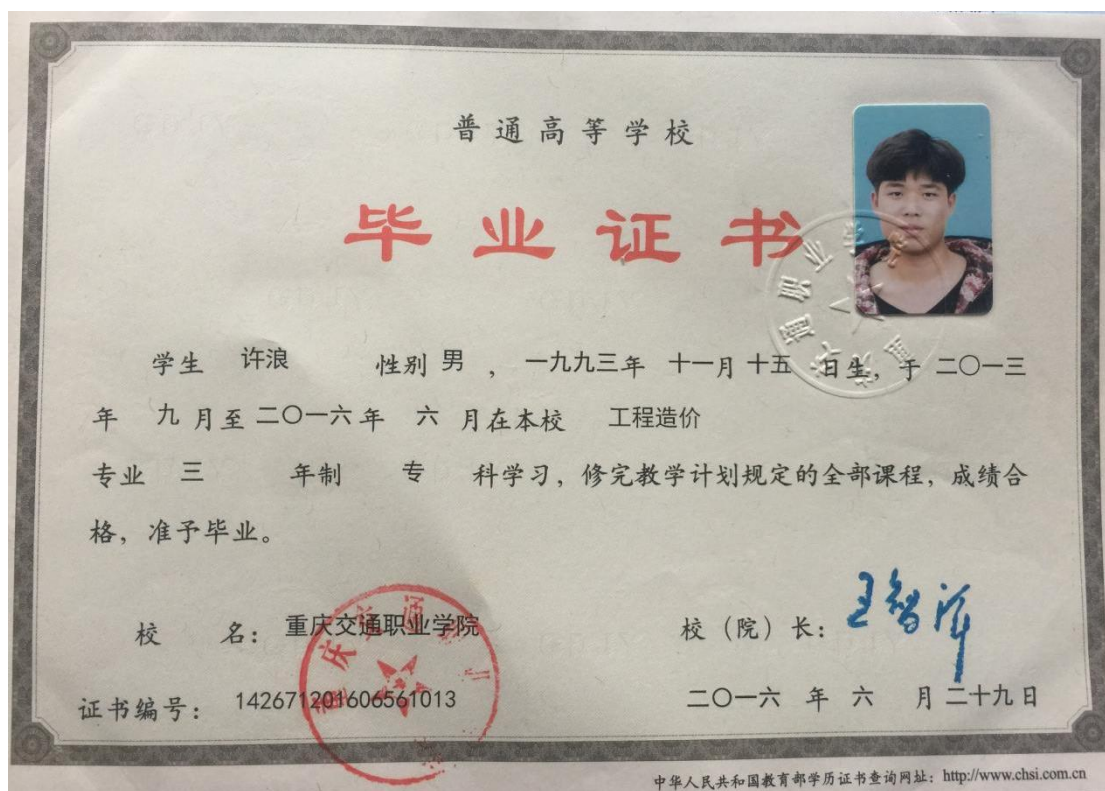 普通高等学校
毕业证书
学生 许浪 性别 男 ， 一九九三年 十一月 十五 日生，于 二〇一三
年 九 月至 二〇一六年 六 月在本校 工程造价
专业 三 年制 专 科学习，修完教学计划规定的全部课程，成绩合
格，准予毕业。
校 名： 重庆交通职业学院
校（院）长：
证书编号： 142671201606561013
二〇一六 年 六 月 二十九日
中华人民共和国教育部学历证书查询网址：http://www.chsi.com.cn